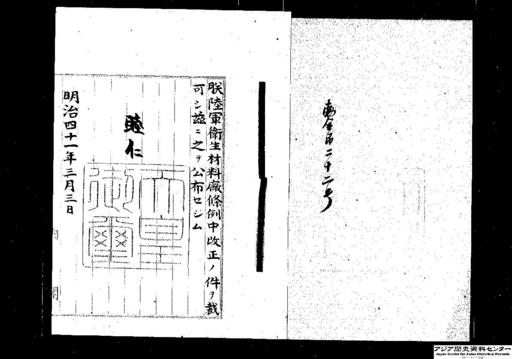 勅令第二十二号
朕陸軍衛生材料廠條例中改正ノ件ヲ裁
可シ茲ニ之ヲ公布セシム
睦仁
天皇
御璽
明治四十一年三月三日
内閣
アジア歴史資料センター
Japan Center for Asian Historical Records